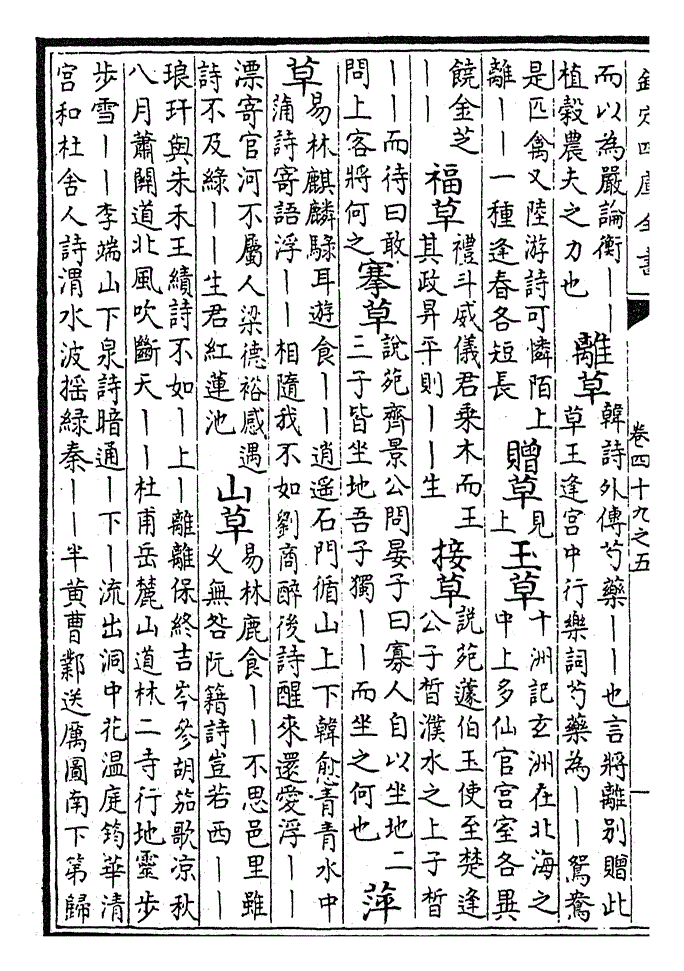 欽定四庫全書 卷四十九之五 一
而以為嚴論衡丨丨
植穀農夫之力也
離草
韓詩外傳芍藥丨丨也言將離別贈此
草王逢宮中行樂詞芍藥為丨丨鴛鴦
是匹禽又陸游詩可憐陌上
離丨丨一種逢春各短長
贈草
見
上
玉草
十洲記玄洲在北海之
中上多仙官宮室各異
饒金芝
丨丨
福草
禮斗威儀君乘木而王
其政昇平則丨丨生
接草
說苑蘧伯玉使至楚逢
公子晳濮水之上子晳
丨丨而待曰敢
問上客將何之
搴草
說苑齊景公問晏子曰寡人自以坐地二
三子皆坐地吾子獨丨丨而坐之何也
萍
草
易林麒麟騄耳遊食丨丨逍遥石門循山上下韓愈青青水中
蒲詩寄語浮丨丨相隨我不如劉商醉後詩醒來還愛浮丨丨
漂寄官河不屬人梁德裕感遇
詩不及綠丨丨生君紅蓮池
山草
易林鹿食丨丨不思邑里雖
乂無咎阮籍詩豈若西丨丨
琅玕與朱禾王績詩不如丨丨上丨離離保終吉岑參胡笳歌凉秋
八月蕭關道北風吹斷天丨丨杜甫岳麓山道林二寺行地靈步
步雪丨丨李端山下泉詩暗通丨丨下丨流出洞中花温庭筠華清
宮和杜舍人詩渭水波摇綠秦丨丨半黃曹鄴送厲圖南下第歸